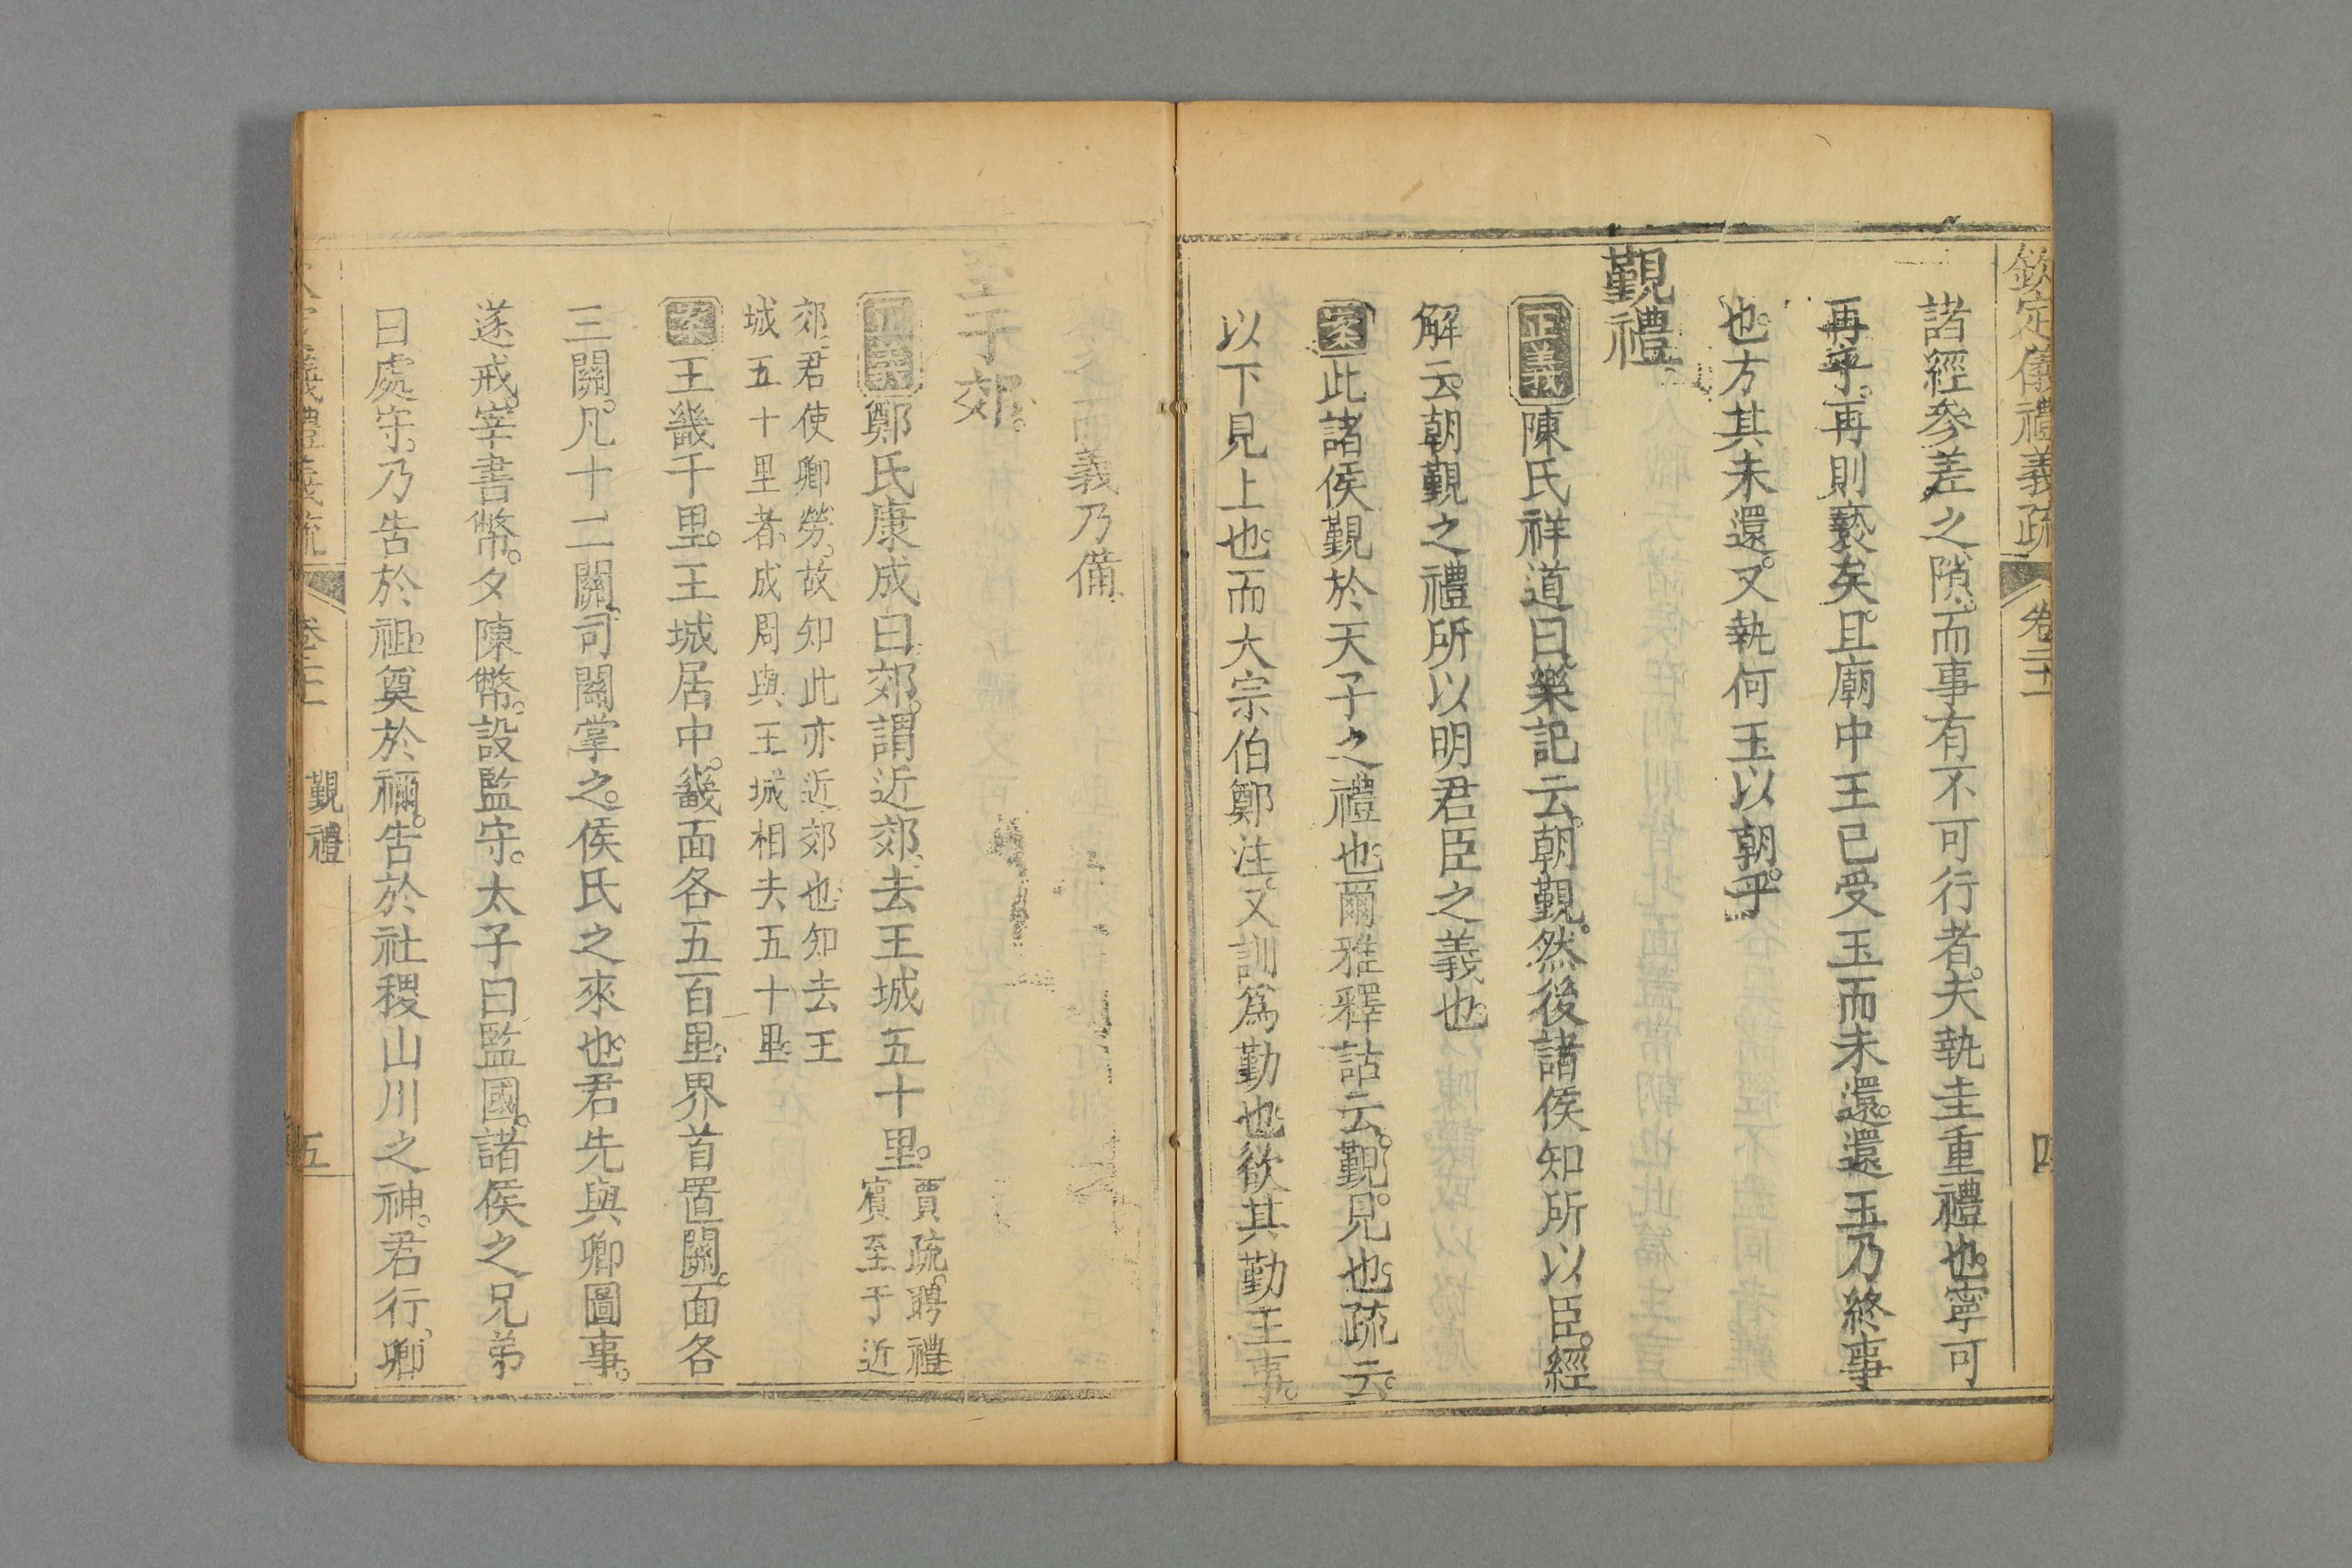 欽定儀禮義疏 卷二十一 四
諸經參差之隙。而事有不可行者。夫執圭重禮也。寧可
再乎。再則褻矣。且廟中王已受玉而未還。還玉乃終事
也。方其未還。又執何玉以朝乎
覲禮
正義陳氏祥道曰。樂記云。朝覲。然後諸侯知所以臣。經
解云。朝覲之禮所以明君臣之義也。
案此諸侯覲於天子之禮也。爾雅釋詁云。覲。見也。疏云。
以下見上也。而大宗伯鄭注。又訓爲勤也。欲其勤王事。
而義乃備
至于郊。
正義鄭氏康成曰。郊。謂近郊。去王城五十里。賈疏。聘禮
賓至于近
郊。君使卿勞。故知此亦近郊也。知去王
城五十里者。成周與王城相去五十里。
案王畿千里。王城居中。畿面各五百里。界首置關。面各
三關。凡十二關。司關掌之。侯氏之來也。君先與卿圖事。
遂戒。宰書幣。夕陳幣。設監守。太子曰監國。諸侯之兄弟
曰處守。乃告於祖。奠於禰。告於社稷山川之神。君行。卿
義禮義疏 覲禮 五